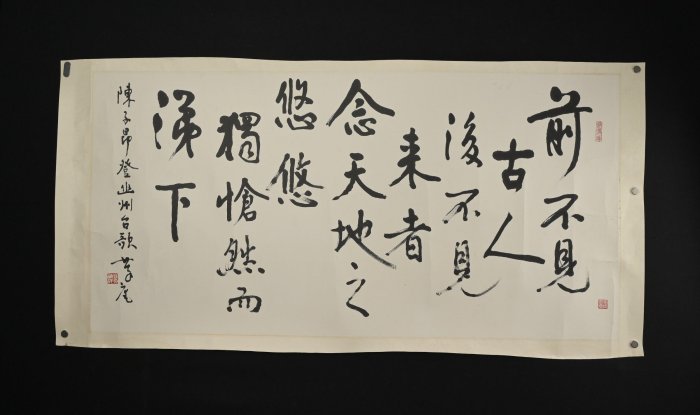 前不見
古人
後不見
来者
念天地之
悠悠
獨愴然而
涕下
陳子昂登幽州台歌